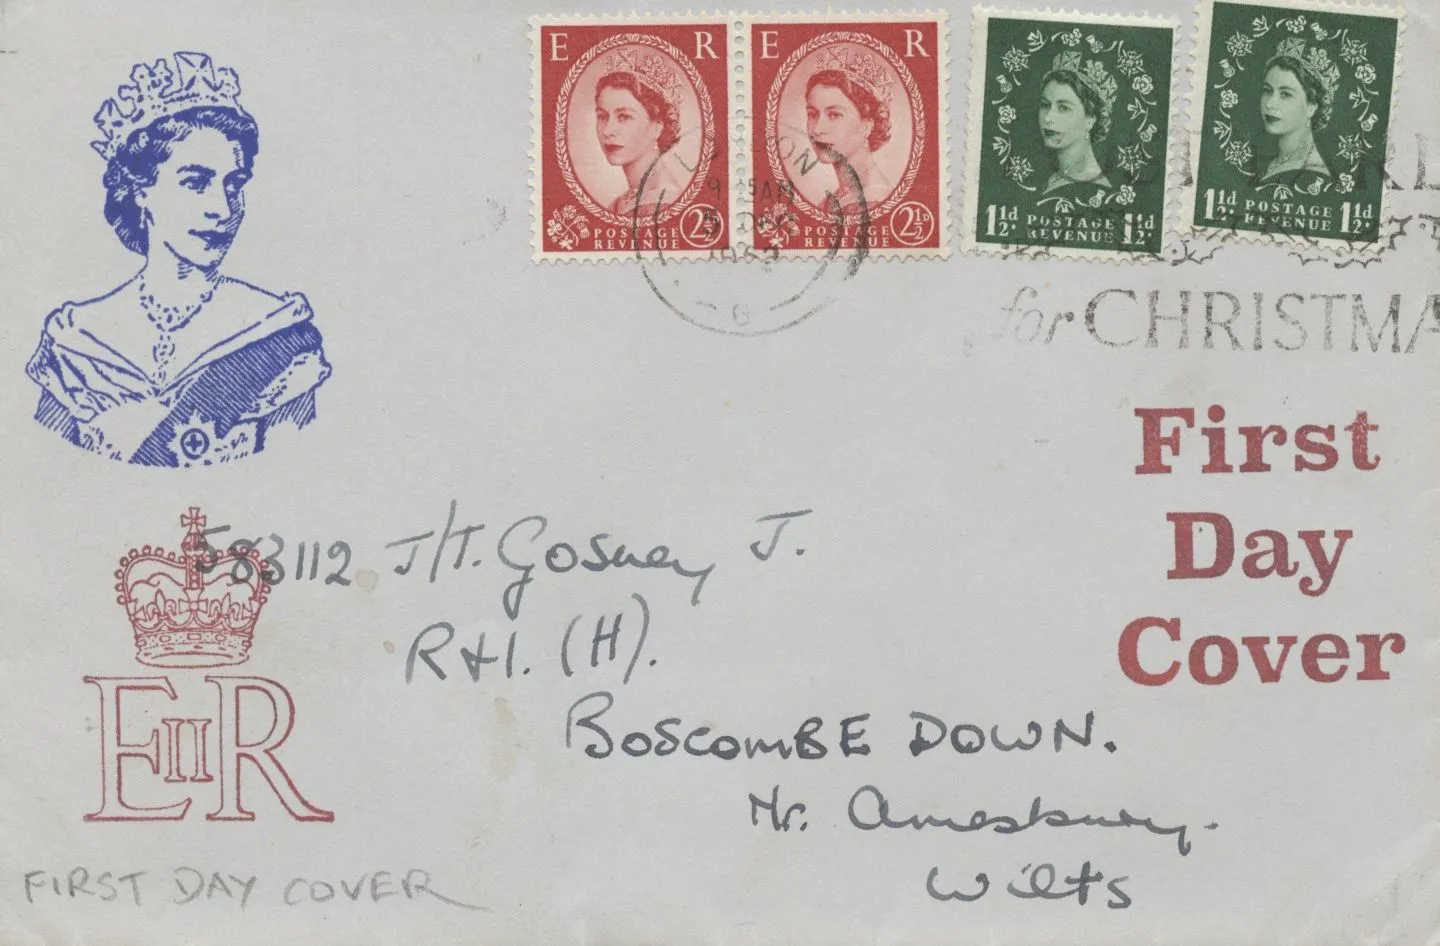 E R
POSTAGE REVENUE 2½D
E R
POSTAGE REVENUE 2½D
1½d. POSTAGE REVENUE 1½d.
1½d. POSTAGE REVENUE 1½d.
9 15AM
5 DEC
G
for CHRISTMA
First
Day
Cover
583112 J/T. Gosney J.
R&I. (H).
BOSCOMBE DOWN.
Nr. Amesbury.
Wilts
EIIR
FIRST DAY COVER